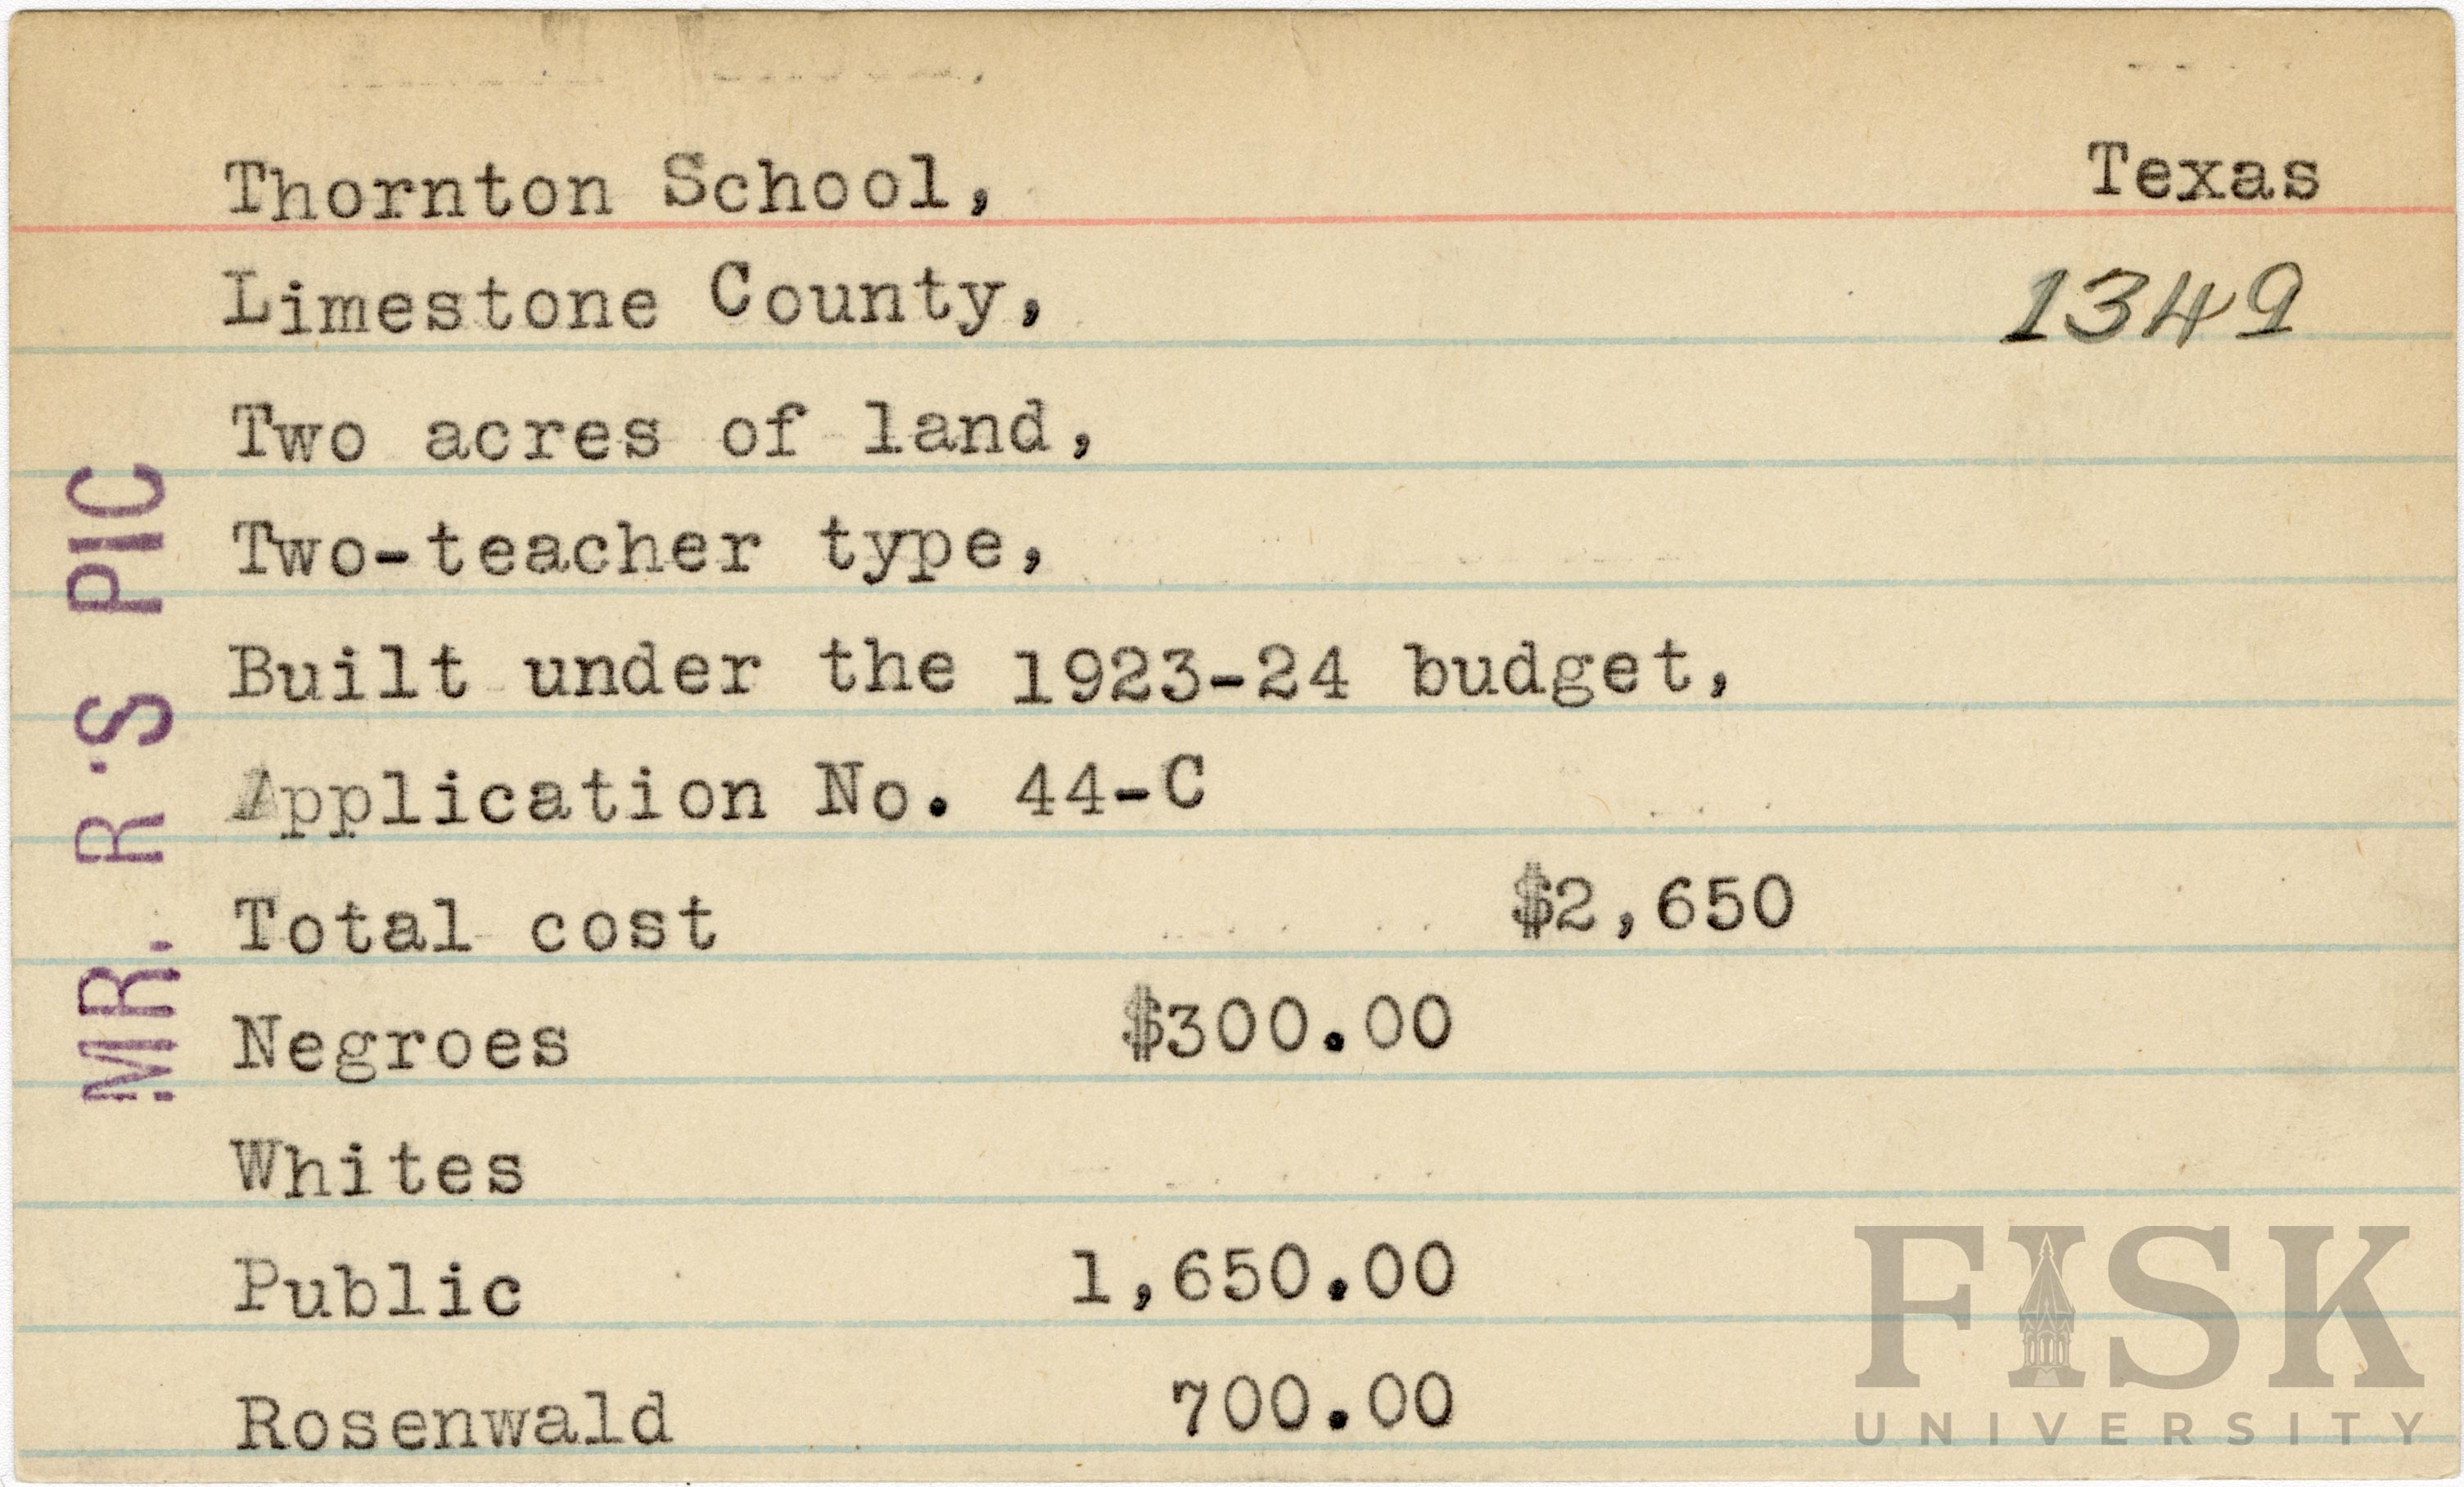 Thornton School, Texas
Limestone County, 1349
Two acres of land,
Two-teacher type,
Built under the 1923-24 budget,
Application No. 44-C
Total cost $2,650
Negroes $300.00
Whites
Public 1,650.00
Rosenwald 700.00
MR. R'S PIC
FISK
UNIVERSITY